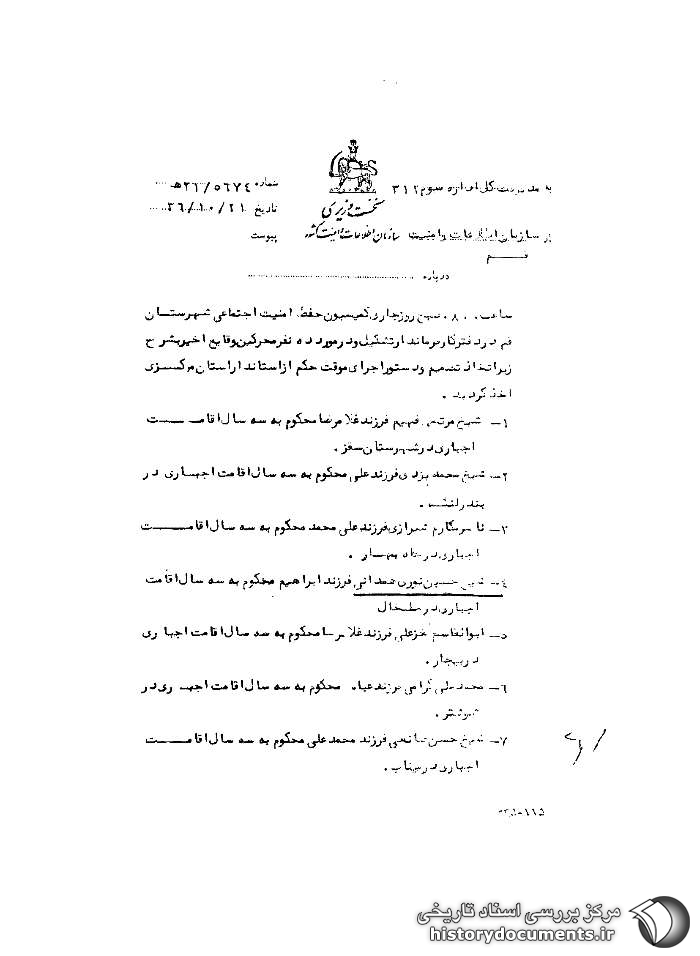 به مدیریت کل اداره سوم ۳۱۲
شماره ۲۶/۵۶۷۴ه
نخست وزیری
تاریخ ۳۶/۱۰/۲۱
از سازمان اطلاعات و امنیت
سازمان اطلاعات و امنیت کشور
پیوست
قم
درباره
ساعت ۸۰۰ صبح روز جاری کمیسیون حفظ امنیت اجتماعی شهرستان
قم در دفتر کار فرماندار تشکیل و در مورد ده نفر محرکین وقایع اخیر بشرح
زیر اتخاذ تصمیم و دستور اجرای موقت حکم از استاندار استان مرکزی
اخذ گردید .
۱- شیخ مرتضی فهیم فرزند غلامرضا محکوم به سه سال اقامت
اجباری در شهرستان سقز .
۲- شیخ محمد یزدی فرزند علی محکوم به سه سال اقامت اجباری در
بندر لنگه .
۳- ناصر مکارم شیرازی فرزند علی محمد محکوم به سه سال اقامت
اجباری در چاه بهار .
۴- شیخ حسین نوری همدانی فرزند ابراهیم محکوم به سه سال اقامت
اجباری در خلخال
۵- ابوالقاسم خزعلی فرزند غلامرضا محکوم به سه سال اقامت اجباری
در بیجار .
۶- محمد علی گرامی فرزند محکوم به سه سال اقامت اجباری در
شوشتر .
۷- شیخ حسن صانعی فرزند محمد علی محکوم به سه سال اقامت
اجباری در میناب .
مرکز بررسی اسناد تاریخی
historydocuments.ir